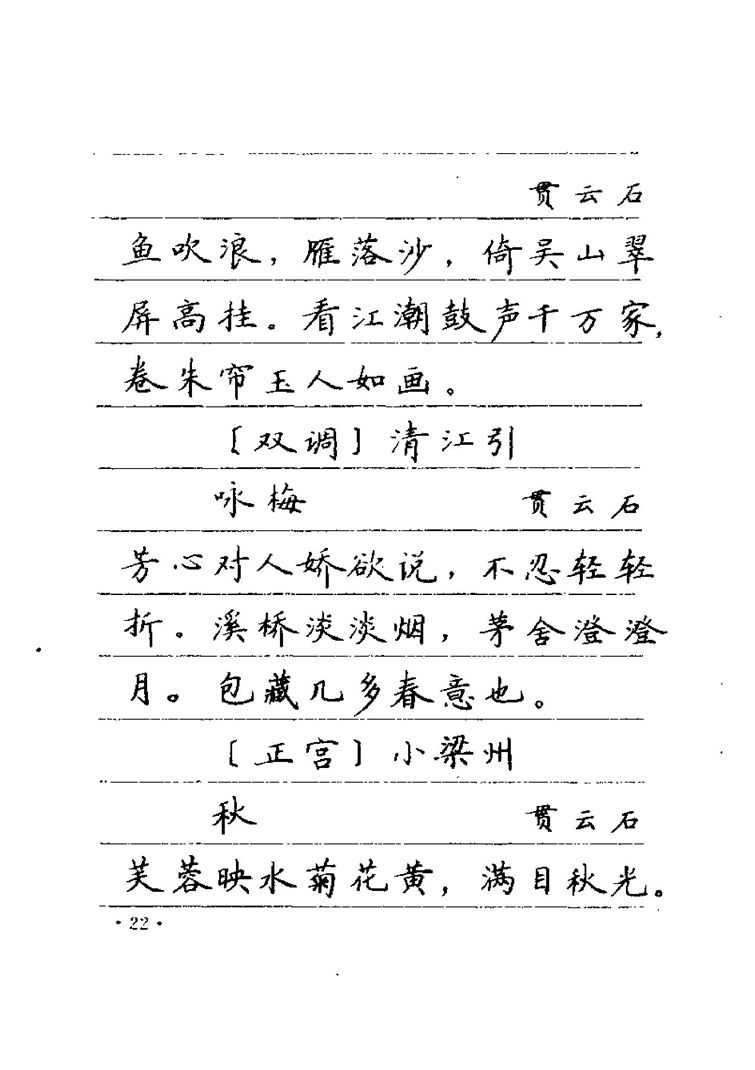 贯云石
鱼吹浪，雁落沙，倚吴山翠
屏高挂。看江潮鼓声千万家，
卷朱帘玉人如画。
〔双调〕清江引
咏梅 贯云石
芳心对人娇欲说，不忍轻轻
折。溪桥淡淡烟，茅舍澄澄
月。包藏几多春意也。
〔正宫〕小梁州
秋 贯云石
芙蓉映水菊花黄，满目秋光。
·22·